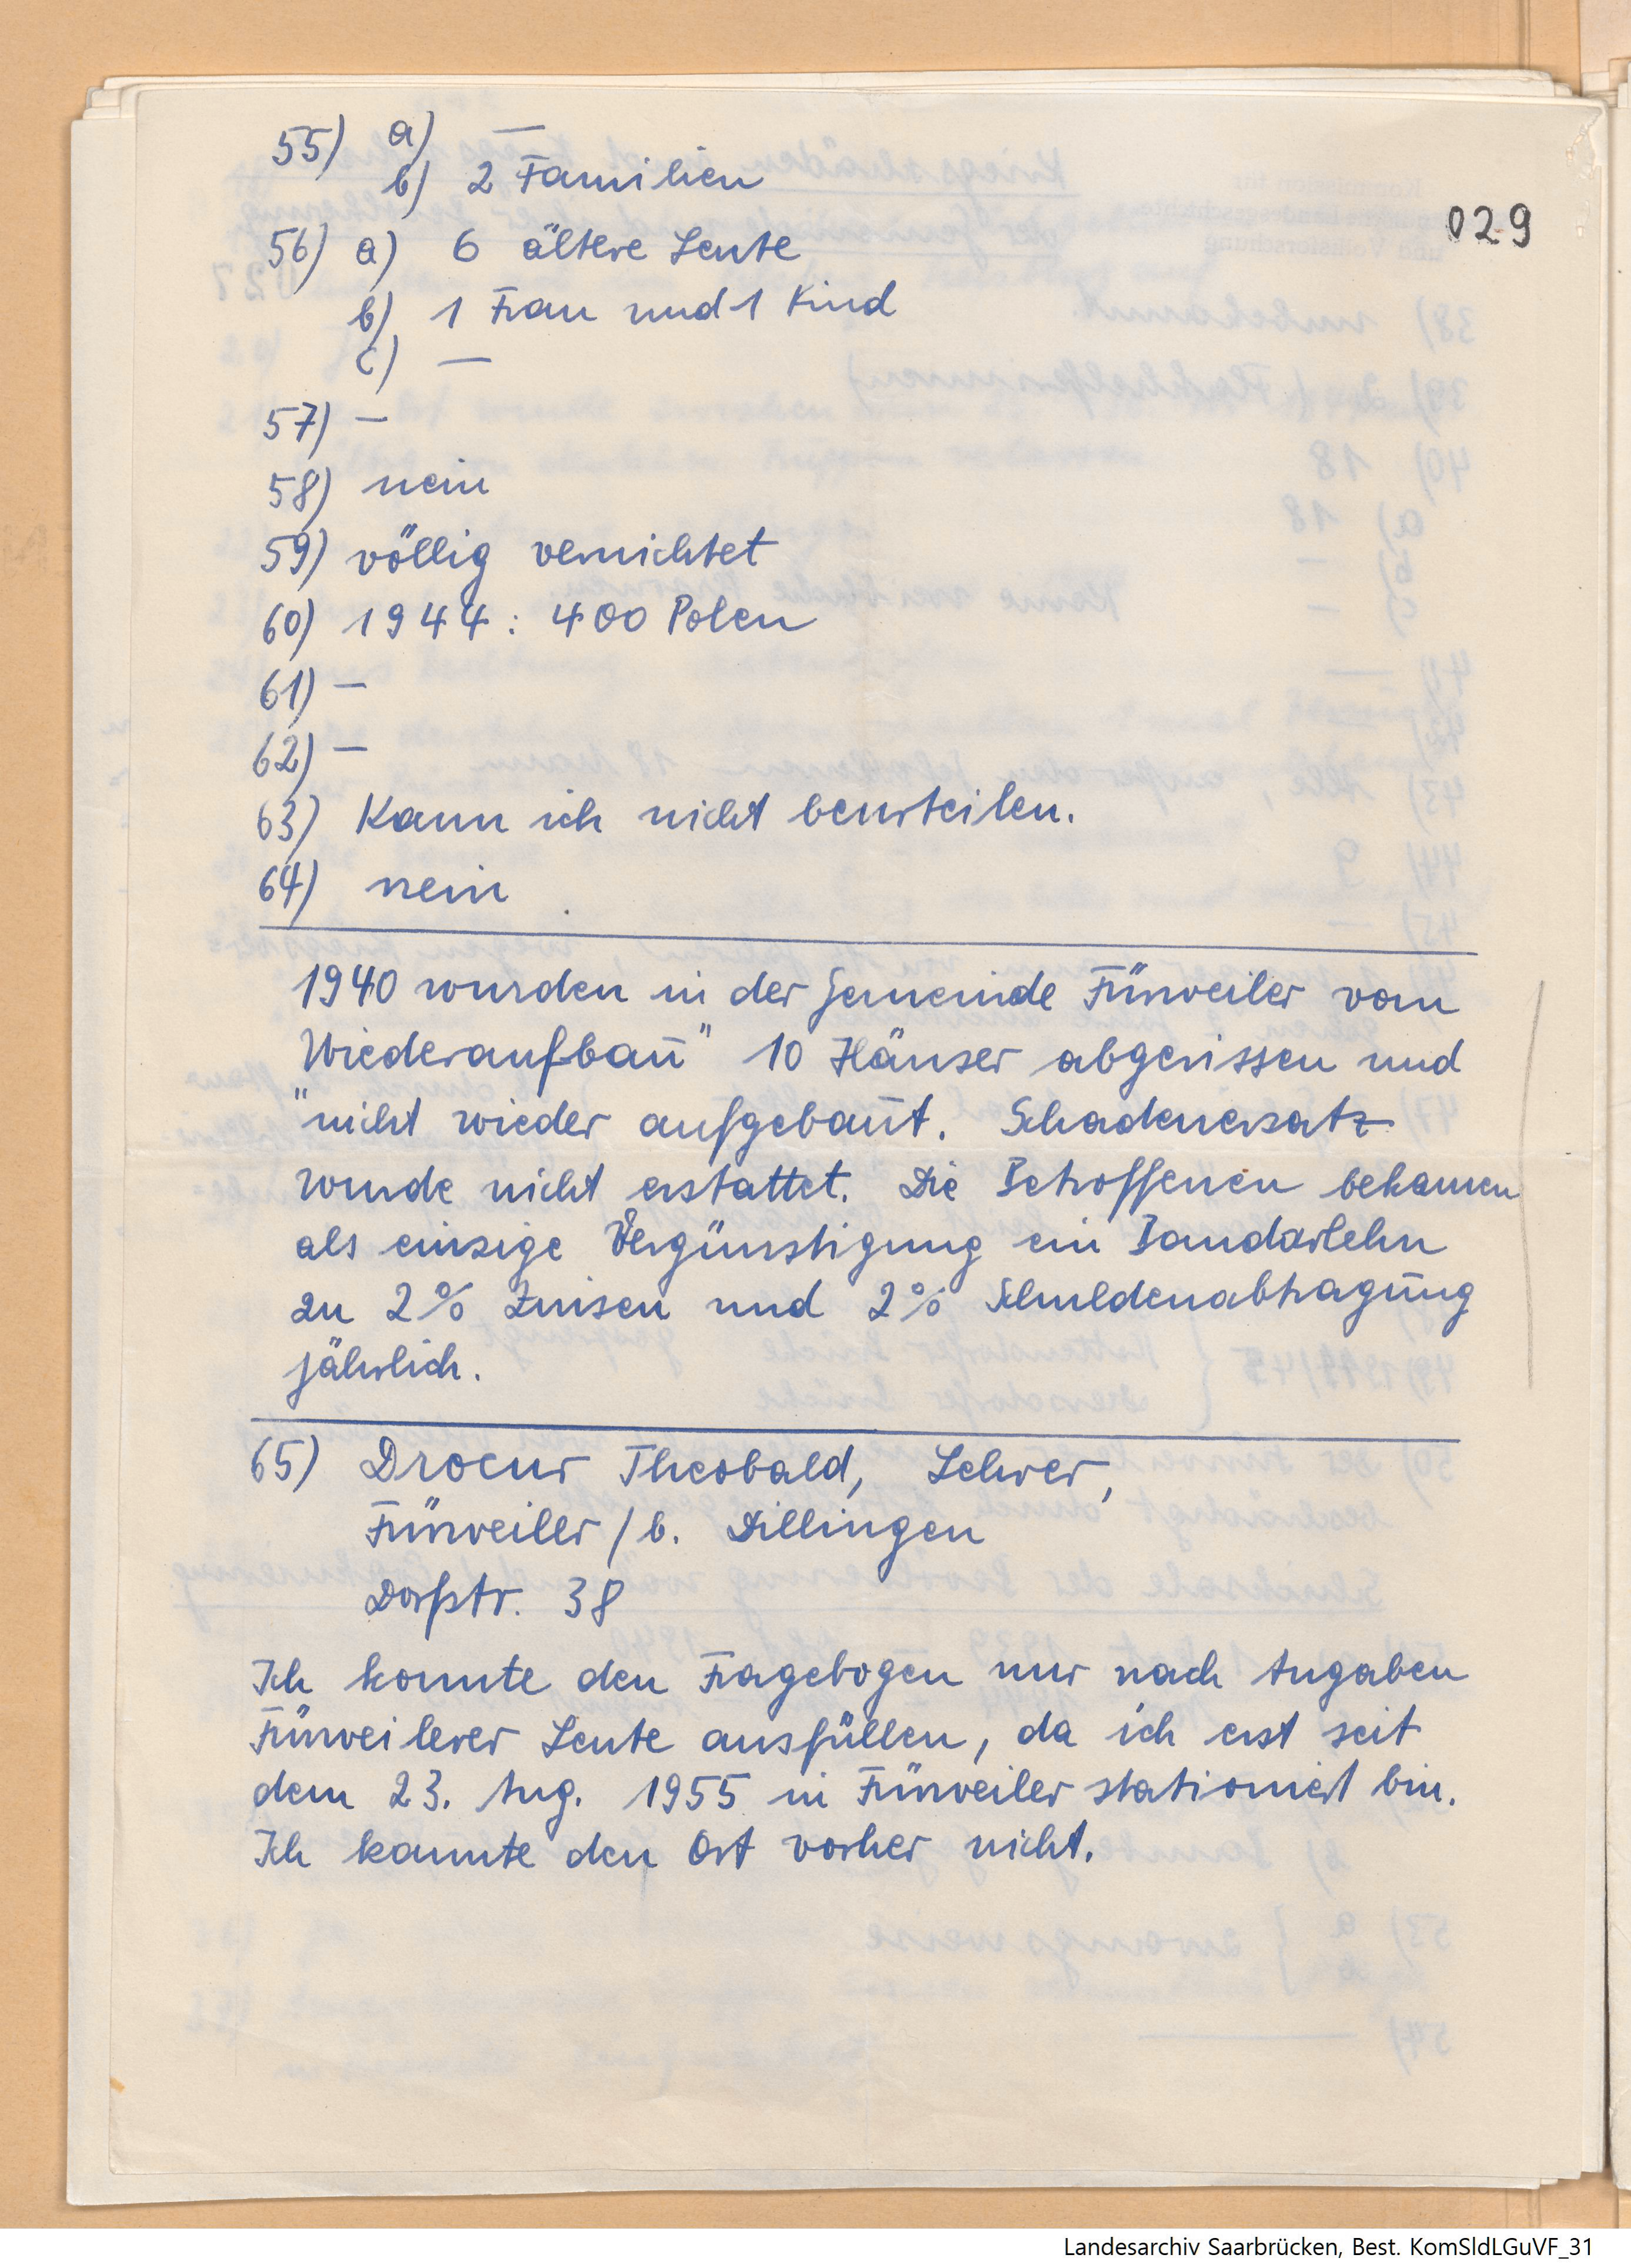 029
55) a) —
b) 2 Familien
56) a) 6 ältere Leute
b) 1 Frau und 1 Kind
c) —
57) —
58) nein
59) völlig vernichtet
60) 1944: 400 Polen
61) —
62) —
63) Kann ich nicht beurteilen.
64) nein
1940 wurden in der Gemeinde Fürweiler vom
Wiederaufbau" 10 Häuser abgerissen und
"nicht wieder aufgebaut. Schadenersatz
wurde nicht erstattet. Die Betroffenen bekamen
als einzige Vergünstigung ein Baudarlehn
zu 2% Zinsen und 2% Schuldenabtragung
jährlich.
65) Drocur Theobald, Lehrer,
Fürweiler / b. Dillingen
Dorfstr. 38
Ich konnte den Fragebogen nur nach Angaben
Fürweilerer Leute ausfüllen, da ich erst seit
dem 23. Aug. 1955 in Fürweiler stationiert bin.
Ich kannte den Ort vorher nicht.
Landesarchiv Saarbrücken, Best. KomSldLGuVF_31